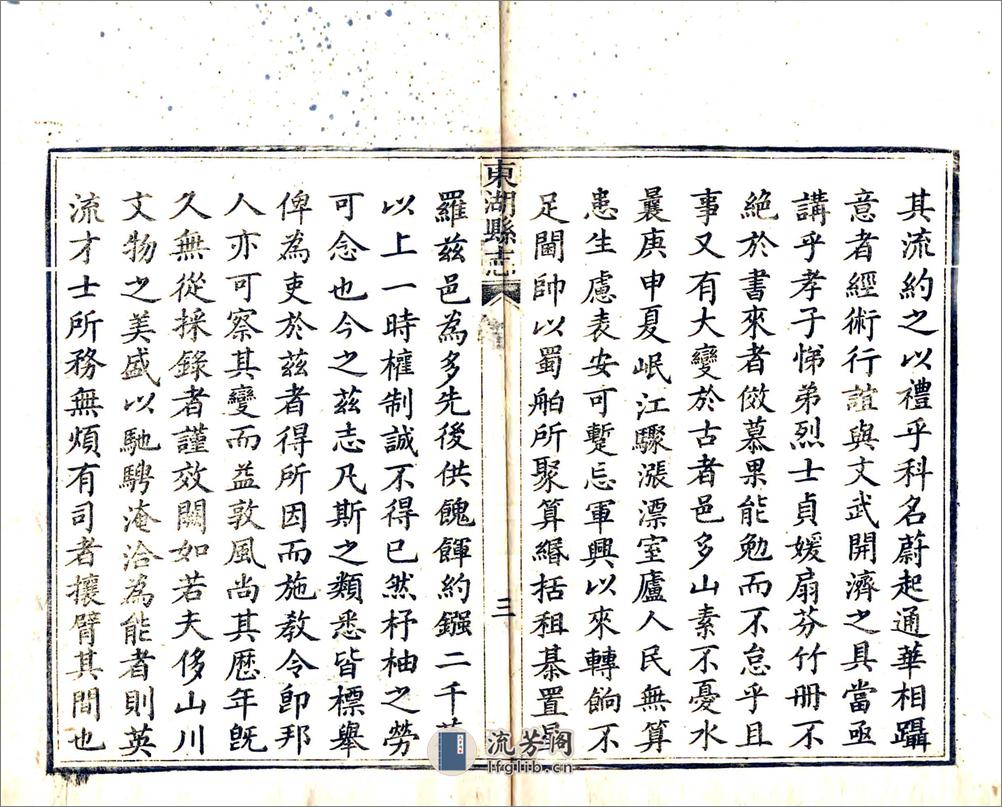 其流約之以禮乎科名蔚起通華相躡
意者經術行誼與文武開濟之具當亟
講乎孝子悌弟烈士貞媛扇芬竹冊不
絕於書來者傚慕果能勉而不怠乎且
事又有大變於古者邑多山素不憂水
曩庚申夏岷江驟漲漂室廬人民無算
患生慮表安可蹔忘軍興以來轉餉不
足閫帥以蜀舶所聚算緡括租棊置
東湖縣志
三
羅茲邑為多先後供餽餫約鏹二千
以上一時權制誠不得已然杼柚之勞
可念也今之茲志凡斯之類悉皆標舉
俾為吏於茲者得所因而施教令卽邦
人亦可察其變而益敦風尚其歷年旣
久無從採錄者謹效闕如若夫侈山川
文物之美盛以馳騁淹洽為能者則英
流才士所務無煩有司者攘臂其間也
流芳閣
lfglib.cn